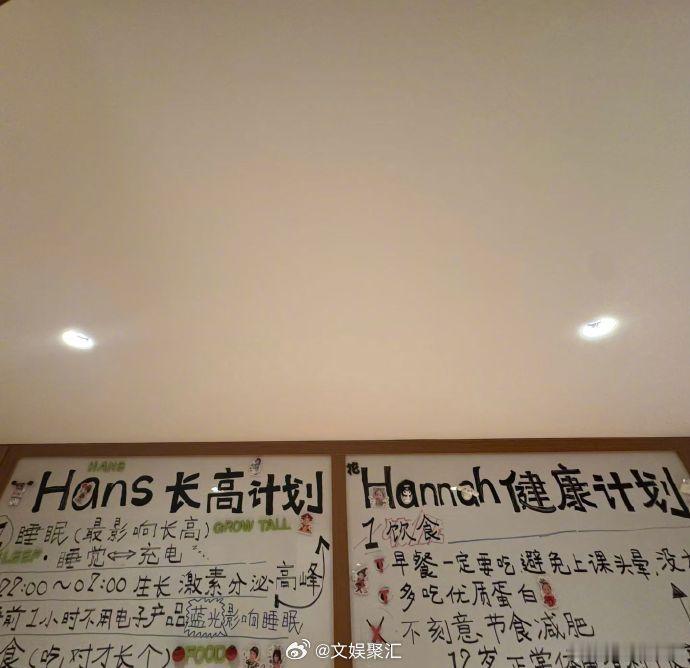 HANS
Hans 长高计划
睡眠(最影响长高) GROW TALL
SLEEP · 睡觉⟷充电
22:00~02:00 生长激素分泌高峰
前1小时不用电子产品蓝光影响睡眠
食(吃对才长个) FOOD
花
Hannah 健康计划
1 饮食
早餐一定要吃 避免上课头晕,没
多吃优质蛋白
不刻意节食减肥
12岁正常体
@文娱聚汇